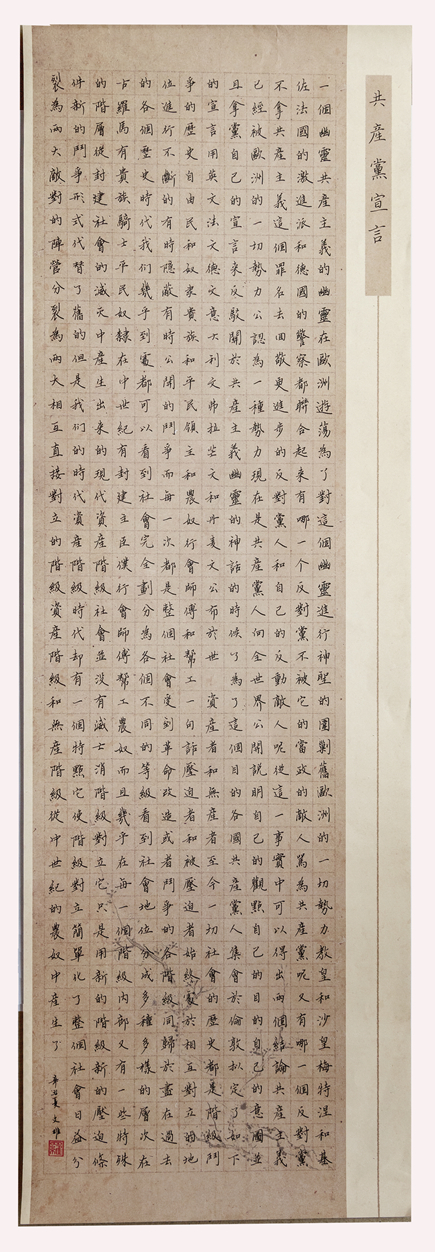 共產黨宣言
一個幽靈共產主義的幽靈在歐洲遊蕩為了對這個幽靈進行神聖的圍剿舊歐洲的一切勢力教皇和沙皇梅特涅和基
佐法國的激進派和德國的警察都聯合起來有哪一个反對黨不被它的當政的敵人罵為共產黨呢又有哪一個反對黨
不拿共產主義這個罪名去回敬更進步的反對黨人和自己的反動敵人呢從這一事實中可以得出兩個結論共產主義
已經被歐洲的一切勢力公認為一種勢力現在是共產黨人向全世界公開說明自己的觀點自己的目的自己的意圖並
且拿黨自己的宣言來反駁關於共產主義幽靈的神話的時候了為了這個目的各國共產黨人集會於倫敦拟定了如下
的宣言用英文法文德文意大利文弗拉芒文和丹麦文公布於世 資產者和無產者至今一切社會的歷史都是階級鬥
爭的歷史自由民和奴隸貴族和平民領主和農奴行會師傅和幫工一句話壓迫者和被壓迫者始終處於相互對立的地
位進行不斷的有時隱蔽有時公開的鬥爭而每一次都是整個社會受到革命改造或者鬥爭的各階級同歸於盡在過去
的各個歷史時代我们幾乎到處都可以看到社會完全劃分為各個不同的等級看到社會地位分成多種多樣的層次在
古羅馬有貴族騎士平民奴隸在中世紀有封建主臣僕行會師傅幫工農奴而且幾乎在每一個階級內部又有一些特殊
的階層從封建社會的滅亡中產生出來的現代資產階級社會並没有滅亡消階級對立它只是用新的階級新的壓迫條
件新的鬥爭形式代替了舊的但是我们的時代資產階級時代却有一個特點它使階級對立簡單化了整個社會日益分
裂為兩大敵對的陣營分裂為兩大相互直接對立的階級資產階級和無產階級從中世紀的農奴中產生了
辛丑夏